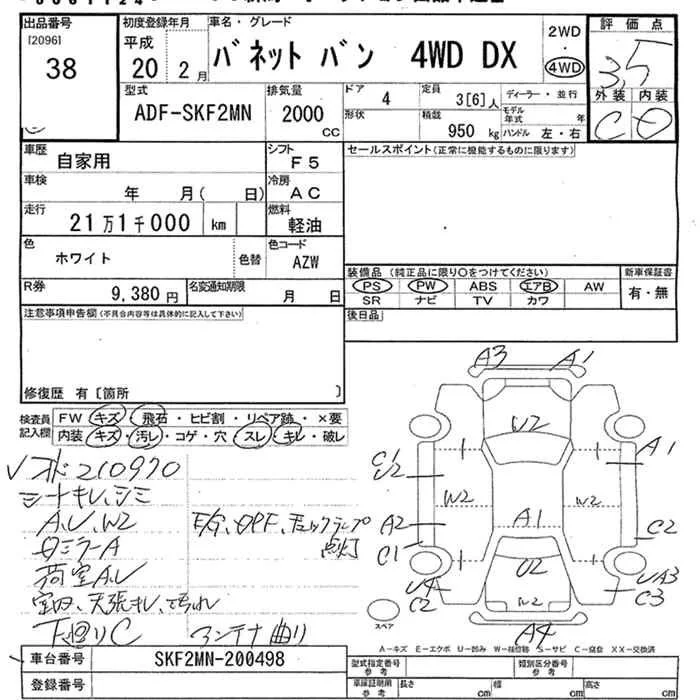 出品番号 初度登録年月 車名・グレード 2WD 評価点
[2096] 平成 バネット バン 4WD DX 4WD 3.5
38 20 2月 外装 内装
型式 排気量 ドア 4 定員 3[6]人 ディーラー・並行 C D
ADF-SKF2MN 2000 CC 形状 積載 950 kg モデル年式 年 ハンドル 左・右
車歴 自家用 シフト F5 セールスポイント(正常に機能するものに限ります)
車検 年 月( 日) 冷房 AC
走行 21万1千000 km 燃料 軽油
色 ホワイト 色替 色コード AZW
装備品 (純正品に限り〇をつけてください) 新車保証書
R券 9,380円 名変通知期限 月 日 PS PW ABS エアB AW 有・無
SR ナビ TV カワ
注意事項申告欄(不具合内容等は具体的に記入して下さい) 後日品
修復歴 有[箇所 ]
検査員記入欄 FW キズ・飛石・ヒビ割・リペア跡・×要
内装 キズ・汚レ・コゲ・穴・スレ・キレ・破レ
210970
シートキレ、シミ
A.U、W2
ミラーA
荷室A.U
下廻りC アンテナ曲り
点灯
A3 A1
W2
A1
W2 W2
A2 A1 C2
C1
U2
U4 C2 W2 UA3 C3
A4
スペア
A-キズ E-エクボ U-凹み W-板修跡 S-サビ C-腐食 XX-交換済
車台番号 SKF2MN-200498 型式指定番号 参考 類別区分番号 参考
登録番号 車庫証明用 参考 長さ cm 幅 cm 高さ cm